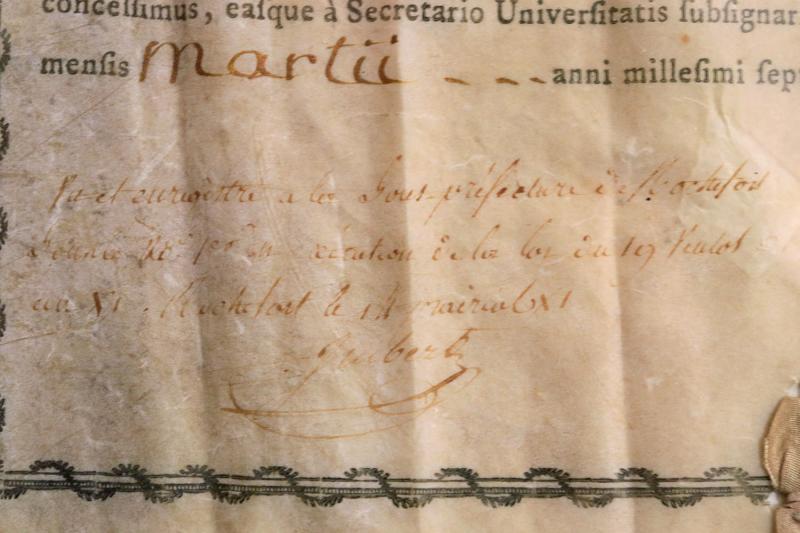 concessimus, easque à Secretario Universitatis subsignar
mensis Martii - - - anni millesimi sept
Vu et enregistré a la Sous-préfecture de Rochefort
Sous le N.º 1er en exécution de la loi du 19 Ventos
an XI. Rochefort le 14 prairial XI